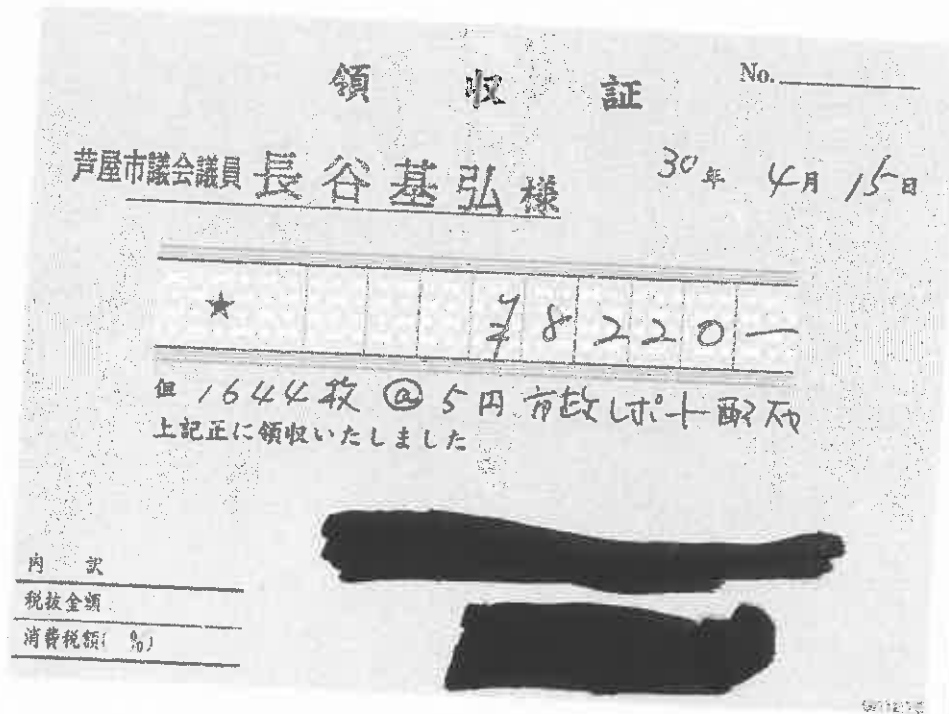 領収証
No.
芦屋市議会議員 長谷基弘様
30年 4月 15日
★ ¥8220ー
但 1644枚 @ 5円 市政レポート配布
上記正に領収いたしました
内訳
税抜金額
消費税額( %)